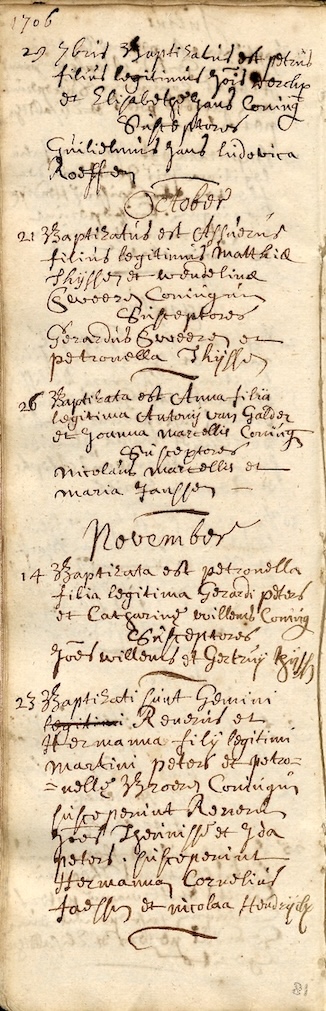 1706
29 7bris Baptizatus est petrus
filius legitimus Joîs
et Elisabethe Jans Coniug
Susceptores
Guilielmus Jans Ludovica
Roeffen
October
21 Baptizatus est Assuerus
filius legitimus Matthiæ
Thijssen et Wendelinæ
Sweeren Coniugum
Susceptores
Gerardus Sweeren et
petronella Thijssen
26 Baptizata est Anna filia
legitima Antonij van Galder
et Joanna Marcellis Coniug
Susceptores
Nicolaus Marcellis et
maria Janssen
November
14 Baptizata est petronella
filia legitima Gerardi peters
et Catharinę willems Coniug
Susceptores
Joês willems et Gertruÿ Thijss
23 Baptizati sunt Gemini
legitimi Renerus et
Hermanna filij legitimi
Martini peters et petro=
=nellę Broeren Coniugum
susceperunt Renerum
Joês et Ida
peters. susceperunt
Hermannam Cornelius
Jaessen et nicolaa Hendrijckx
81